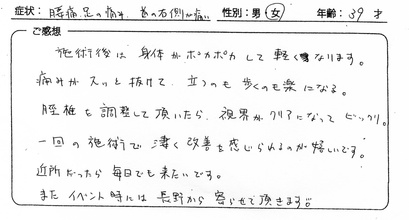 症状: 腰痛、足の痛み、首の右側が痛い 性別:男・女 年齢:39才
ご感想
施術後は身体がポカポカして軽くなります。
痛みがスッと抜けて、立つのも歩くのも楽になる。
頚椎を調整して頂いたら、視界がクリアになってビックリ。
一回の施術で凄く改善を感じられるのが嬉しいです。
近所だったら毎日でも来たいです。
またイベント時には長野から寄らせて頂きます!!